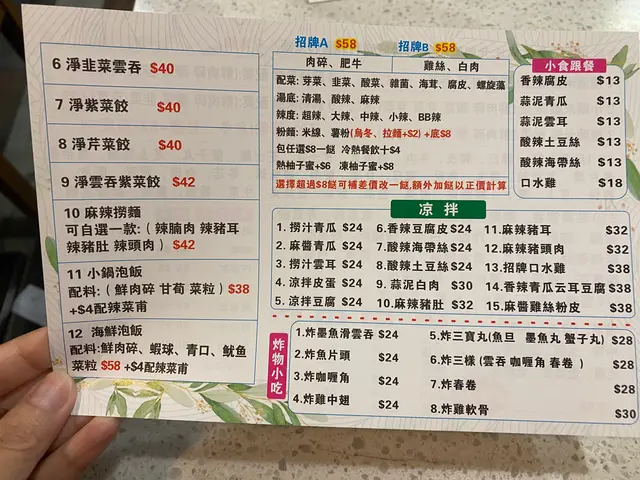 6 淨韭菜雲吞 $40
7 淨紫菜餃 $40
8 淨芹菜餃 $40
9 淨雲吞紫菜餃 $42
10 麻辣撈麵
可自選一款:（辣腩肉 辣豬耳
辣豬肚 辣頭肉） $42
11 小鍋泡飯
配料:（鮮肉碎 甘荀 菜粒）$38
+$4配辣菜甫
12 海鮮泡飯
配料:鮮肉碎、蝦球、青口、魷魚
菜粒 $58 +$4配辣菜甫
招牌A $58 招牌B $58
肉碎、肥牛 雞絲、白肉
配菜: 芽菜、韭菜、酸菜、雜菌、海茸、腐皮、螺旋藻
湯底: 清湯、酸辣、麻辣
辣度: 超辣、大辣、中辣、小辣、BB辣
粉麵: 米線、薯粉(烏冬、拉麵+$2) +底$8
包任選$8一餸 冷熱餐飲十$4
熱柚子蜜+$6 凍柚子蜜+$8
選擇超過$8餸可補差價改一餸,額外加餸以正價計算
小食跟餐
香辣腐皮 $13
蒜泥青瓜 $13
蒜泥雲耳 $13
酸辣土豆絲 $13
酸辣海帶絲 $13
口水雞 $18
凉 拌
1. 撈汁青瓜 $24
2. 麻醬青瓜 $24
3. 撈汁雲耳 $24
4. 涼拌皮蛋 $24
5. 涼拌豆腐 $24
6.香辣豆腐皮 $24
7.酸辣海帶絲 $24
8.酸辣土豆絲 $24
9. 蒜泥白肉 $30
10.麻辣豬肚 $32
11.麻辣豬耳 $32
12.麻辣豬頭肉 $32
13.招牌口水雞 $38
14.香辣青瓜云耳豆腐 $38
15.麻醬雞絲粉皮 $38
炸物小吃
1.炸墨魚滑雲吞 $24
2.炸魚片頭 $24
3.炸咖喱角 $24
4.炸雞中翅 $24
5.炸三寶丸(魚旦 墨魚丸 蟹子丸) $28
6.炸三樣(雲吞 咖喱角 春卷 ) $28
7.炸春卷 $28
8.炸雞軟骨 $30